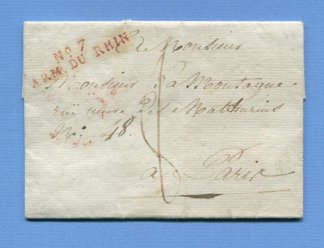 No 7
ARM. DU RHIN
A Monsieur
Monsieur La Montagne
rue neuve des Mathurins
No. 18.
à Paris